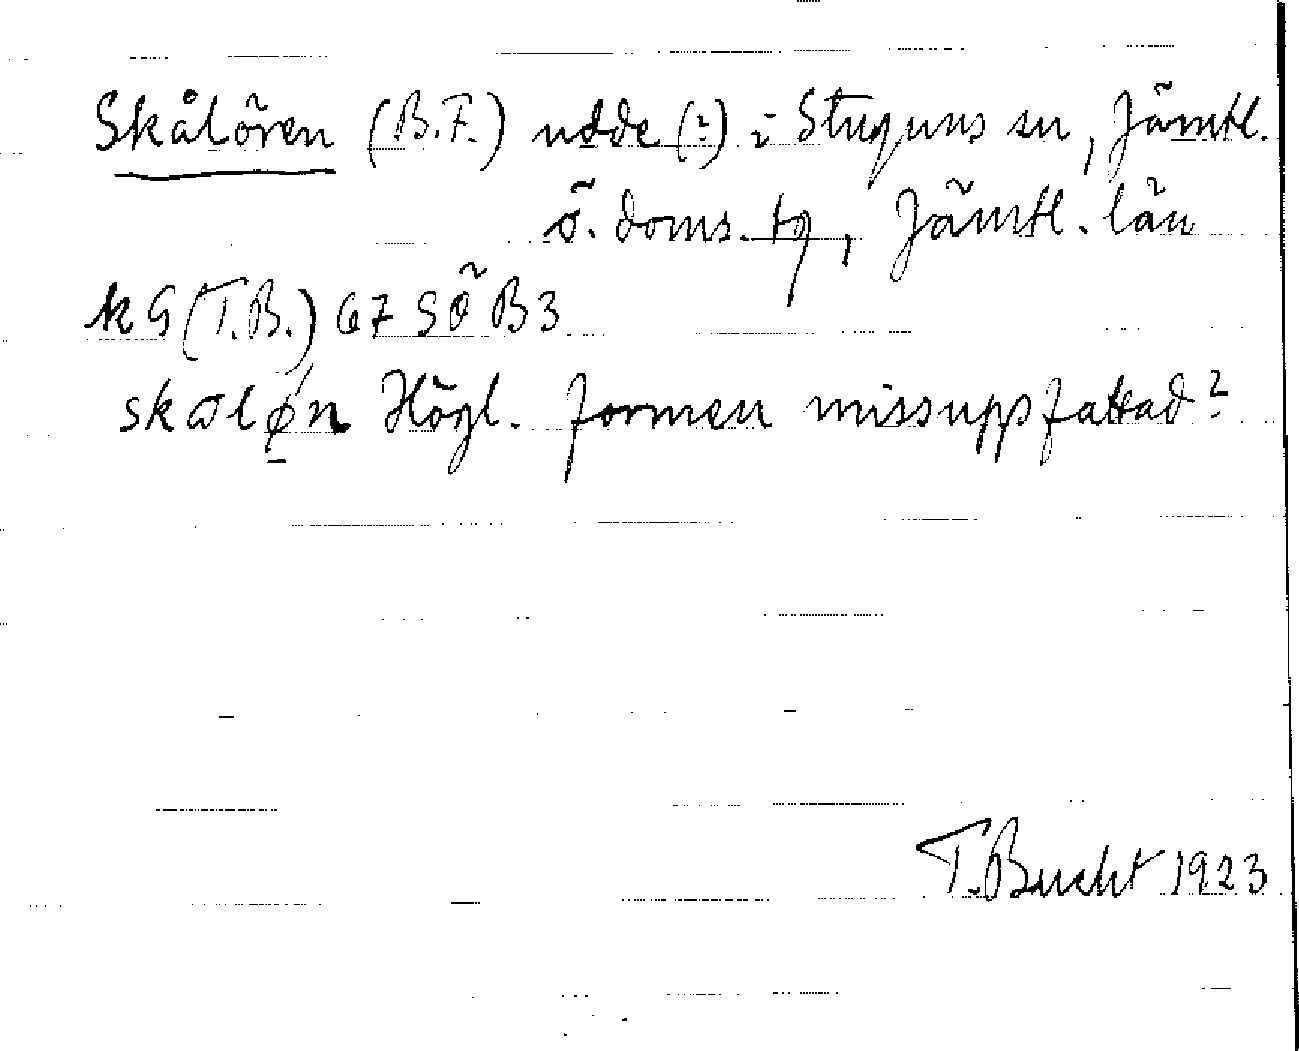 Skålören (B.F.) udde (?) i Stuguns sn, Jämtl.
ö. doms. tg, Jämtl. län
kG (T.B.) 67 SÖ B3
Högl. formen missuppfattad?
T. Bucht 1923